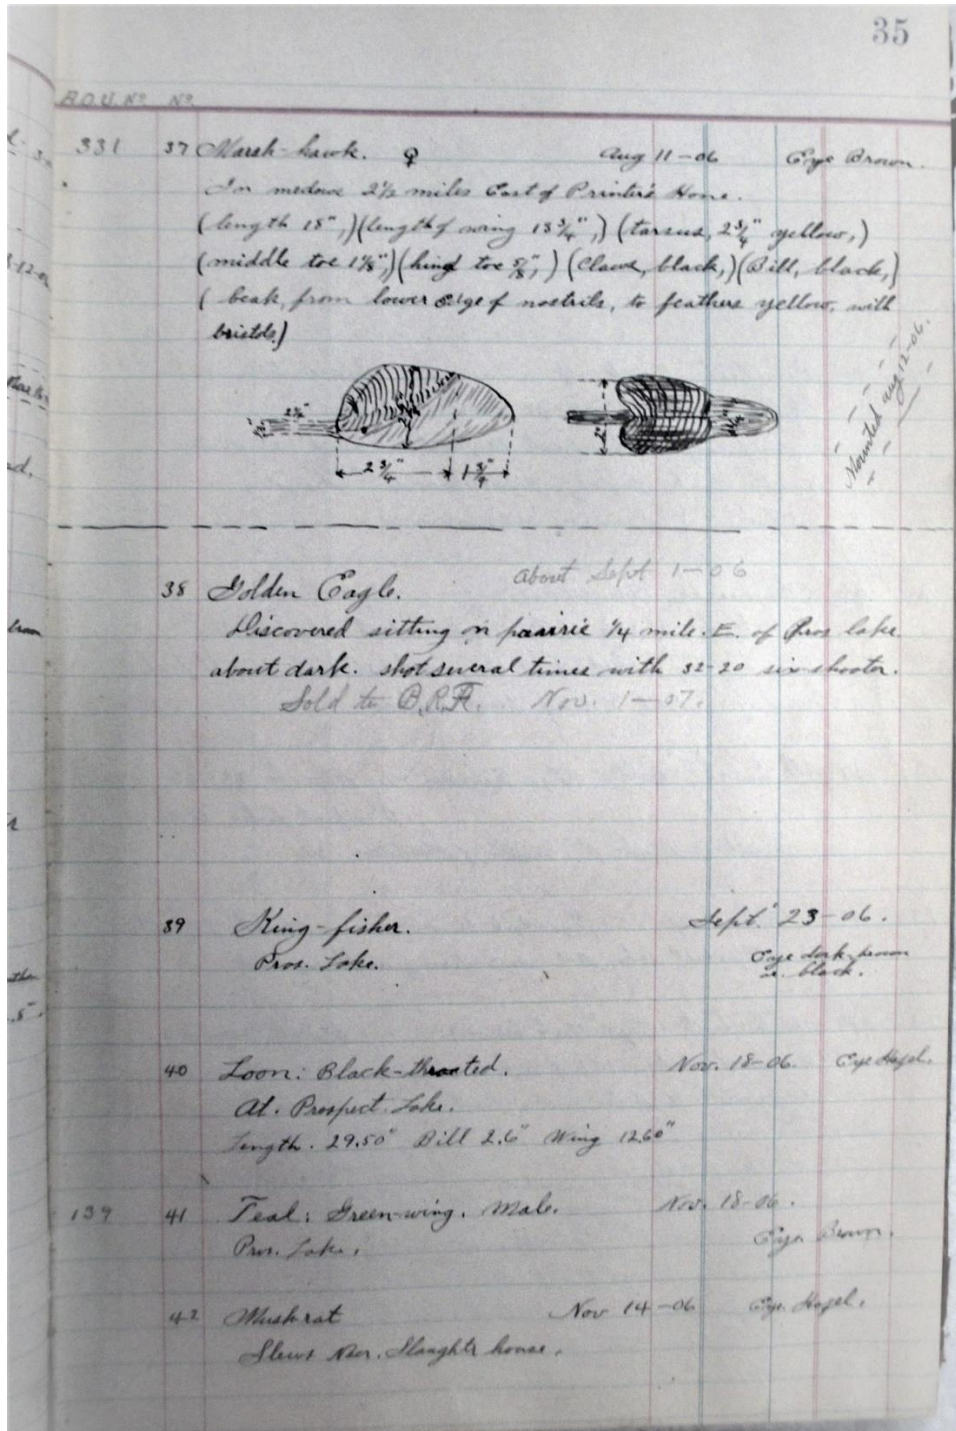 35
A.O.U. No. No.
331 37 Marsh-hawk. ♀ Aug 11-06 Eye Brown.
In medowe 2½ miles East of Printer's Home.
(length 18",)(length of wing 13¾",) (tarsus, 2¾" yellow,)
(middle toe 1⅛",)(hind toe ⅝",) (Claws, black,)(Bill, black,)
(beak, from lower edge of nostrils, to feathers yellow, with
bristols.)
Mounted Aug 12-06.
2" 
2¾" 1¾"
38 Golden Eagle. About Sept 1-06
Discovered sitting on prairie ¼ mile. E. of Pros lake.
about dark. shot several times with 32-20 six-shooter.
Sold to Nov. 1-07.
39 King-fisher. Sept. 23-06.
Pros. Lake. Eye dark-brown
or black.
40 Loon: Black-throated. Nov. 18-06. Eye Hazel.
At. Prospect. Lake.
Length. 29.50" Bill 2.6" Wing 12.60"
139 41 Teal: Green-wing. Male. Nov. 18-06.
Pros. Lake. Eye. Brown.
42 Muskrat Nov 14-06 Eye. Hazel.
Near. Slaughtr house.